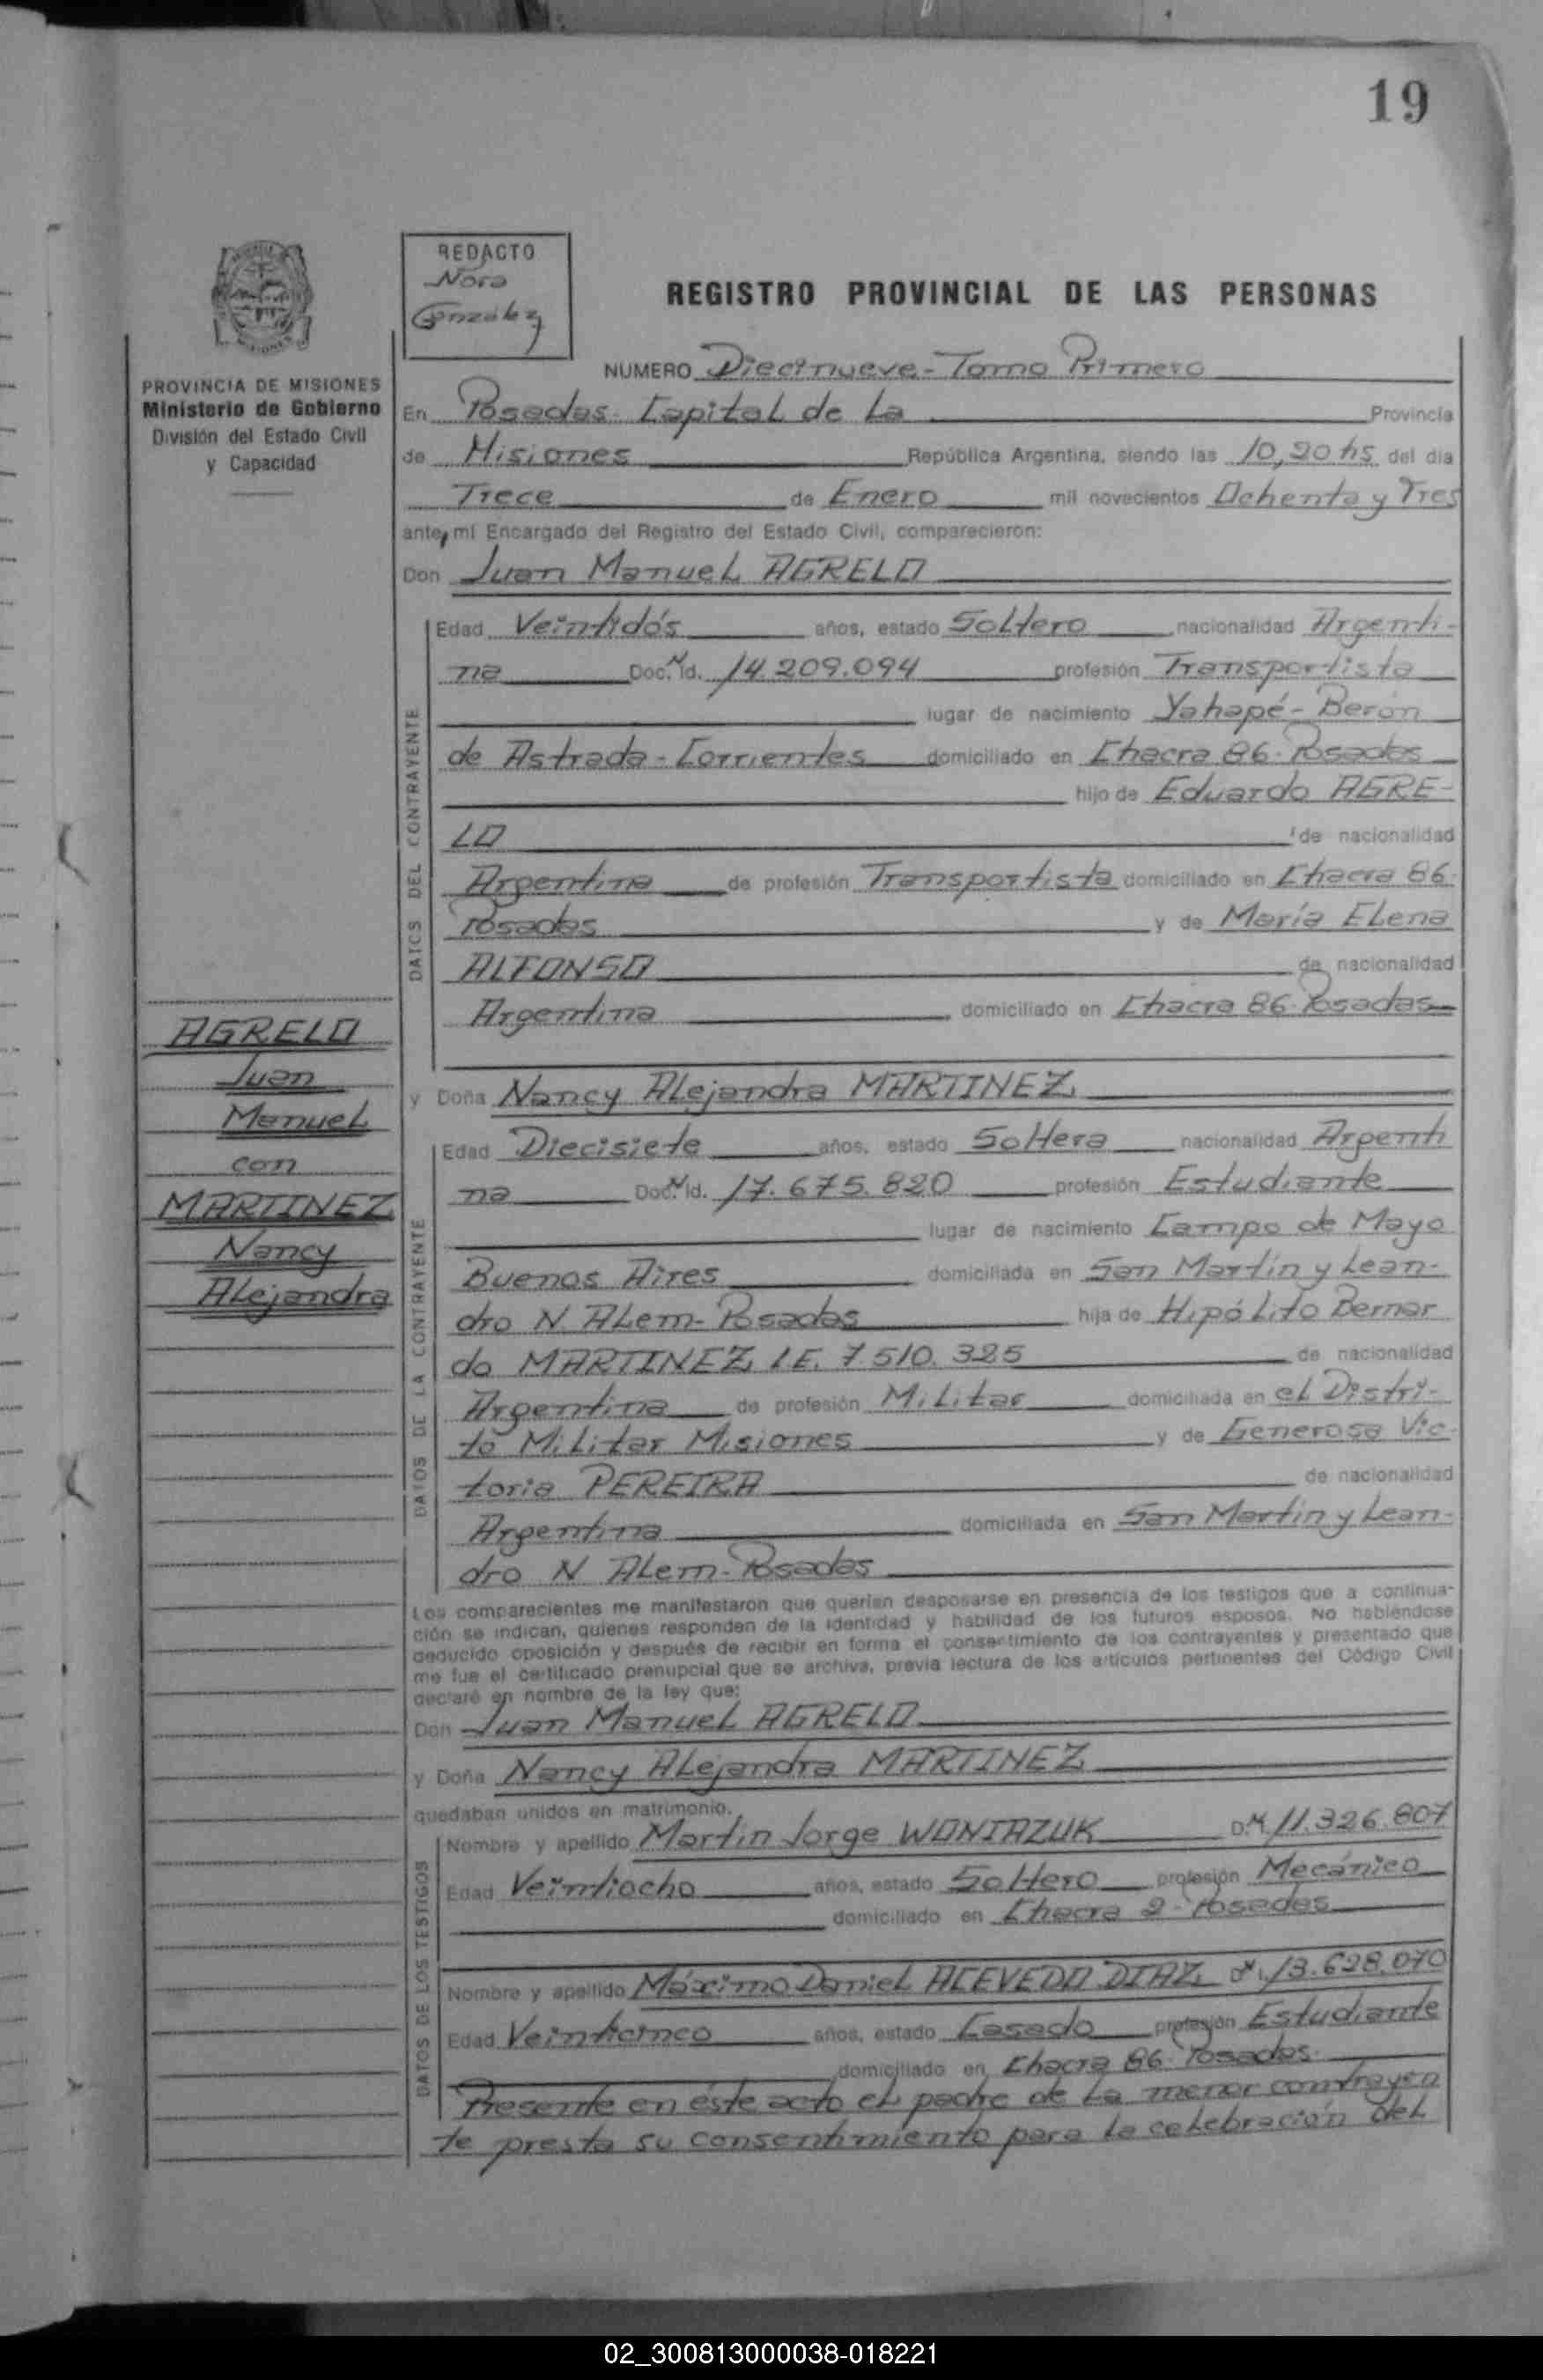 19
REDACTO
Nora
González
REGISTRO PROVINCIAL DE LAS PERSONAS
PROVINCIA DE MISIONES
Ministerio de Gobierno
División del Estado Civil
y Capacidad
NUMERO Diecinueve - Tomo Primero
En Posadas - Capital de La Provincia
de Misiones República Argentina, siendo las 10,20 hs del día
Trece de Enero mil novecientos Ochenta y Tres
ante mí Encargado del Registro del Estado Civil, comparecieron:
Don Juan Manuel AGRELO
DATOS DEL CONTRAYENTE
Edad Veintidós años, estado Soltero nacionalidad Argenti-
na Doc. Nº Id. 14.209.094 profesión Transportista
lugar de nacimiento Yahapé - Berón
de Astrada - Corrientes domiciliado en Chacra 86 - Posadas
hijo de Eduardo AGRE-
LO de nacionalidad
Argentina de profesión Transportista domiciliado en Chacra 86.
Posadas y de María Elena
ALFONSO de nacionalidad
Argentina domiciliado en Chacra 86 - Posadas
AGRELO
Juan
Manuel
con
MARTINEZ
Nancy
Alejandra
y Doña Nancy Alejandra MARTINEZ
DATOS DE LA CONTRAYENTE
Edad Diecisiete años, estado Soltera nacionalidad Argenti
na Doc. Nº Id. 17.675.820 profesión Estudiante
lugar de nacimiento Campo de Mayo
Buenos Aires domiciliada en San Martín y Lean-
dro N Alem - Posadas hija de Hipólito Bernar
do MARTINEZ L.E. 7.510.325 de nacionalidad
Argentina de profesión Militar domiciliada en el Distri-
to Militar Misiones y de Generosa Vic-
toria PEREIRA de nacionalidad
Argentina domiciliada en San Martín y Lean-
dro N Alem - Posadas
Los comparecientes me manifestaron que querían desposarse en presencia de los testigos que a continua-
ción se indican, quienes responden de la identidad y habilidad de los futuros esposos. No habiéndose
deducido oposición y después de recibir en forma el consentimiento de los contrayentes y presentado que
me fue el certificado prenupcial que se archiva, previa lectura de los artículos pertinentes del Código Civil
declaré en nombre de la ley que:
Don Juan Manuel AGRELO
y Doña Nancy Alejandra MARTINEZ
quedaban unidos en matrimonio.
DATOS DE LOS TESTIGOS
Nombre y apellido Martín Jorge WONIAZUK D.N. 11.326.807
Edad Veintiocho años, estado Soltero profesión Mecánico
domiciliado en Chacra 2 - Posadas
Nombre y apellido Máximo Daniel ACEVEDO DIAZ 13.628.070
Edad Veinticinco años, estado Casado profesión Estudiante
domiciliado en Chacra 86 - Posadas
Presente en éste acto el padre de la menor contrayen
te presta su consentimiento para la celebración del
02_300813000038-018221